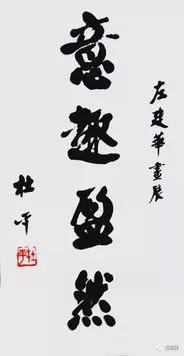 左建華畫展
意趣盈然
杜平